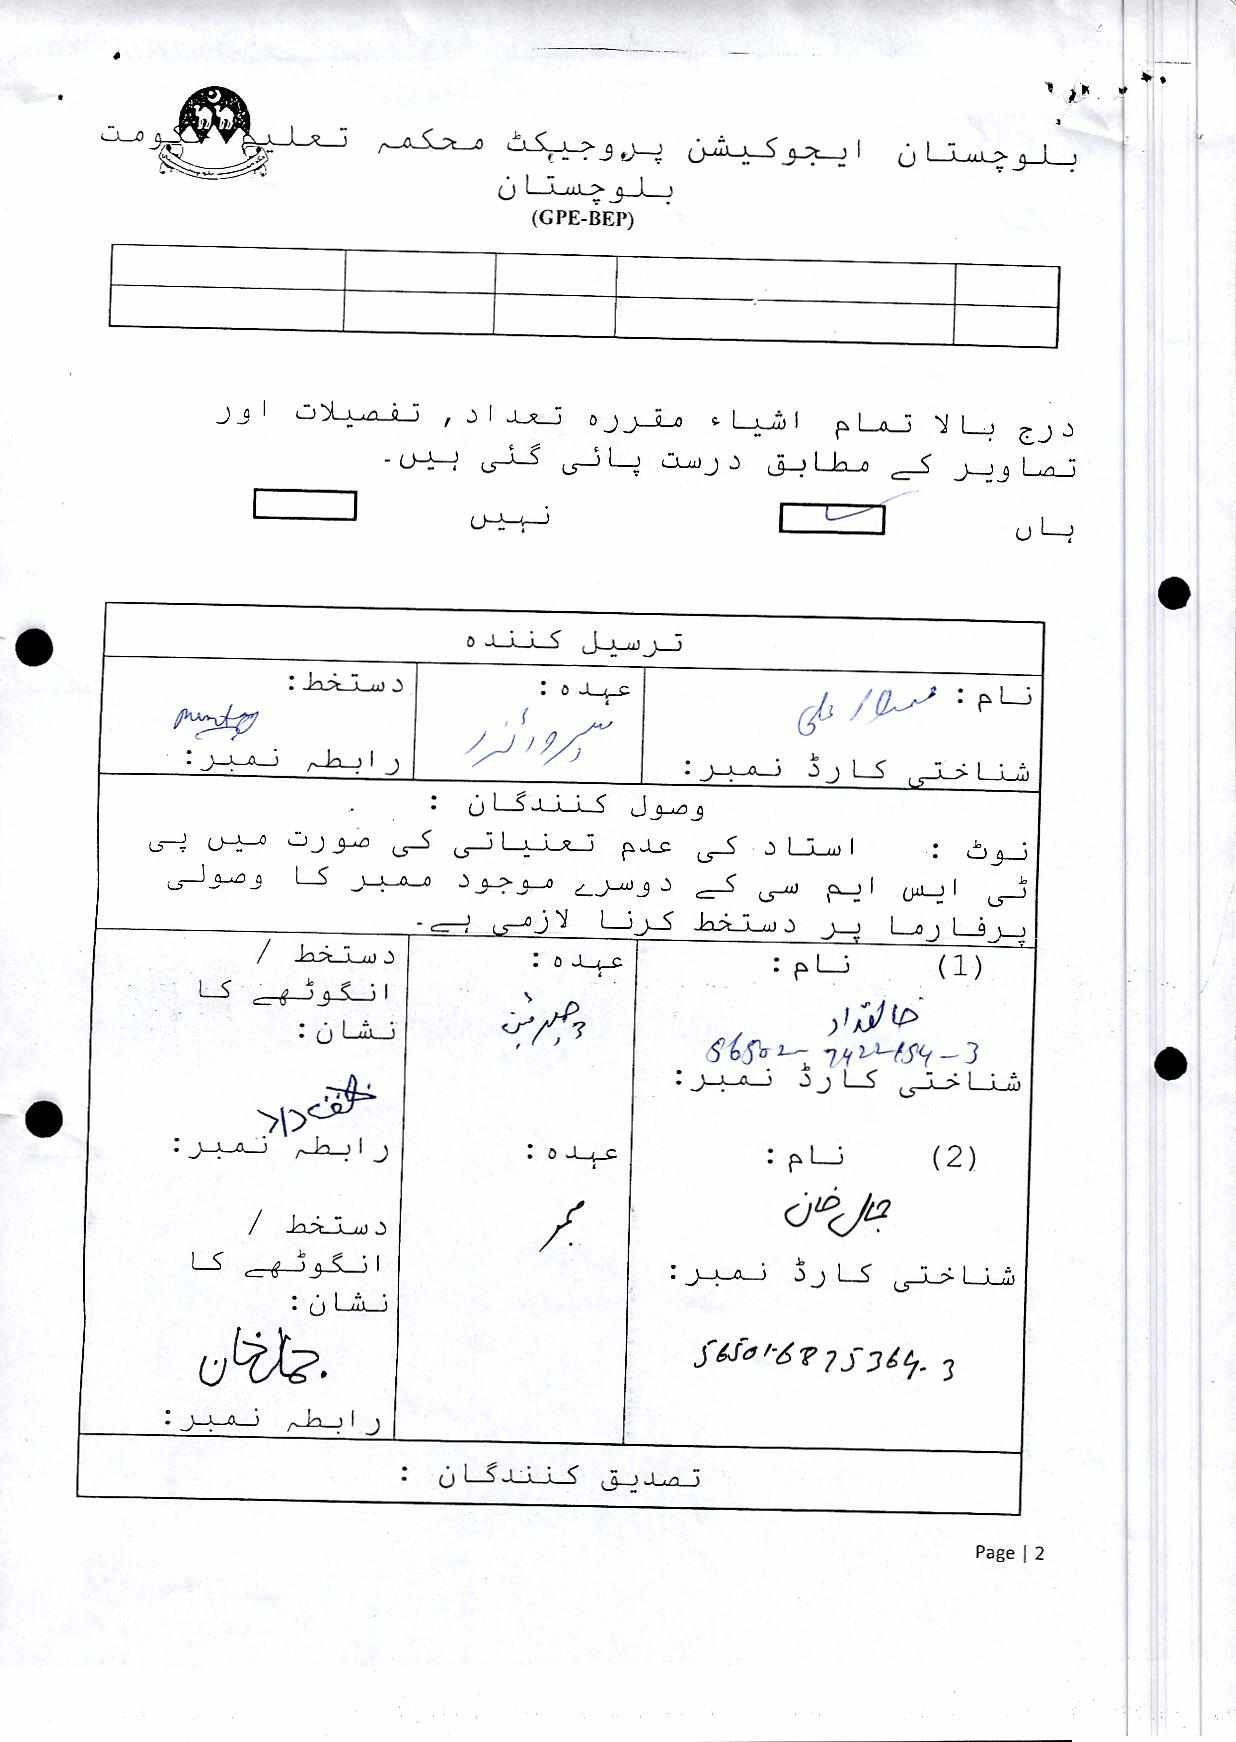 بلوچستان ایجوکیشن پروجیکٹ محکمہ تعلیم حکومت
بلوچستان
(GPE-BEP)
درج بالا تمام اشیاء مقررہ تعداد, تفصیلات اور
تصاویر کے مطابق درست پائی گئی ہیں۔
ہاں نہیں
ترسیل کنندہ
نام : علی عہدہ : دستخط:
سپروائزر
شناختی کارڈ نمبر: رابطہ نمبر:
وصول کنندگان :
نوٹ : استاد کی عدم تعنیاتی کی صورت میں پی
ٹی ایس ایم سی کے دوسرے موجود ممبر کا وصولی
پرفارما پر دستخط کرنا لازمی ہے۔
(1) نام : عہدہ : دستخط /
انگوٹھے کا
نشان :
خالقداد چیرمین
شناختی کارڈ نمبر:
رابطہ نمبر:
(2) نام : عہدہ :
خان ممبر
دستخط /
انگوٹھے کا
نشان :
شناختی کارڈ نمبر:
56501-6875364-3
جمال خان
رابطہ نمبر:
تصدیق کنندگان :
Page | 2